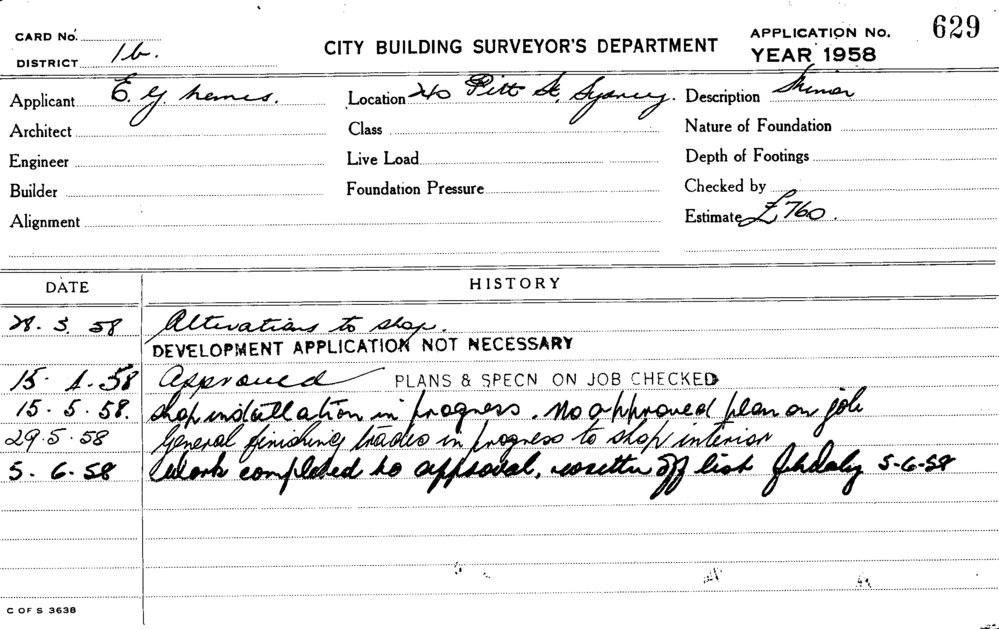 CARD No.
DISTRICT 1b.
CITY BUILDING SURVEYOR'S DEPARTMENT
APPLICATION No. 629
YEAR 1958
Applicant E. G Nemes.
Location 240 Pitt St, Sydney.
Description Minor
Architect
Class
Nature of Foundation
Engineer
Live Load
Depth of Footings
Builder
Foundation Pressure
Checked by
Alignment
Estimate £760.
DATE HISTORY
28. 3. 58 Alterations to shop.
DEVELOPMENT APPLICATION NOT NECESSARY
15. 4. 58 Approved PLANS & SPECN ON JOB CHECKED
15. 5. 58. Shop installation in progress. No approved plan on job
29. 5. 58 General finishing trades in progress to shop interior
5. 6. 58 Work completed to approval, off list 5-6-58
C OF S 3638